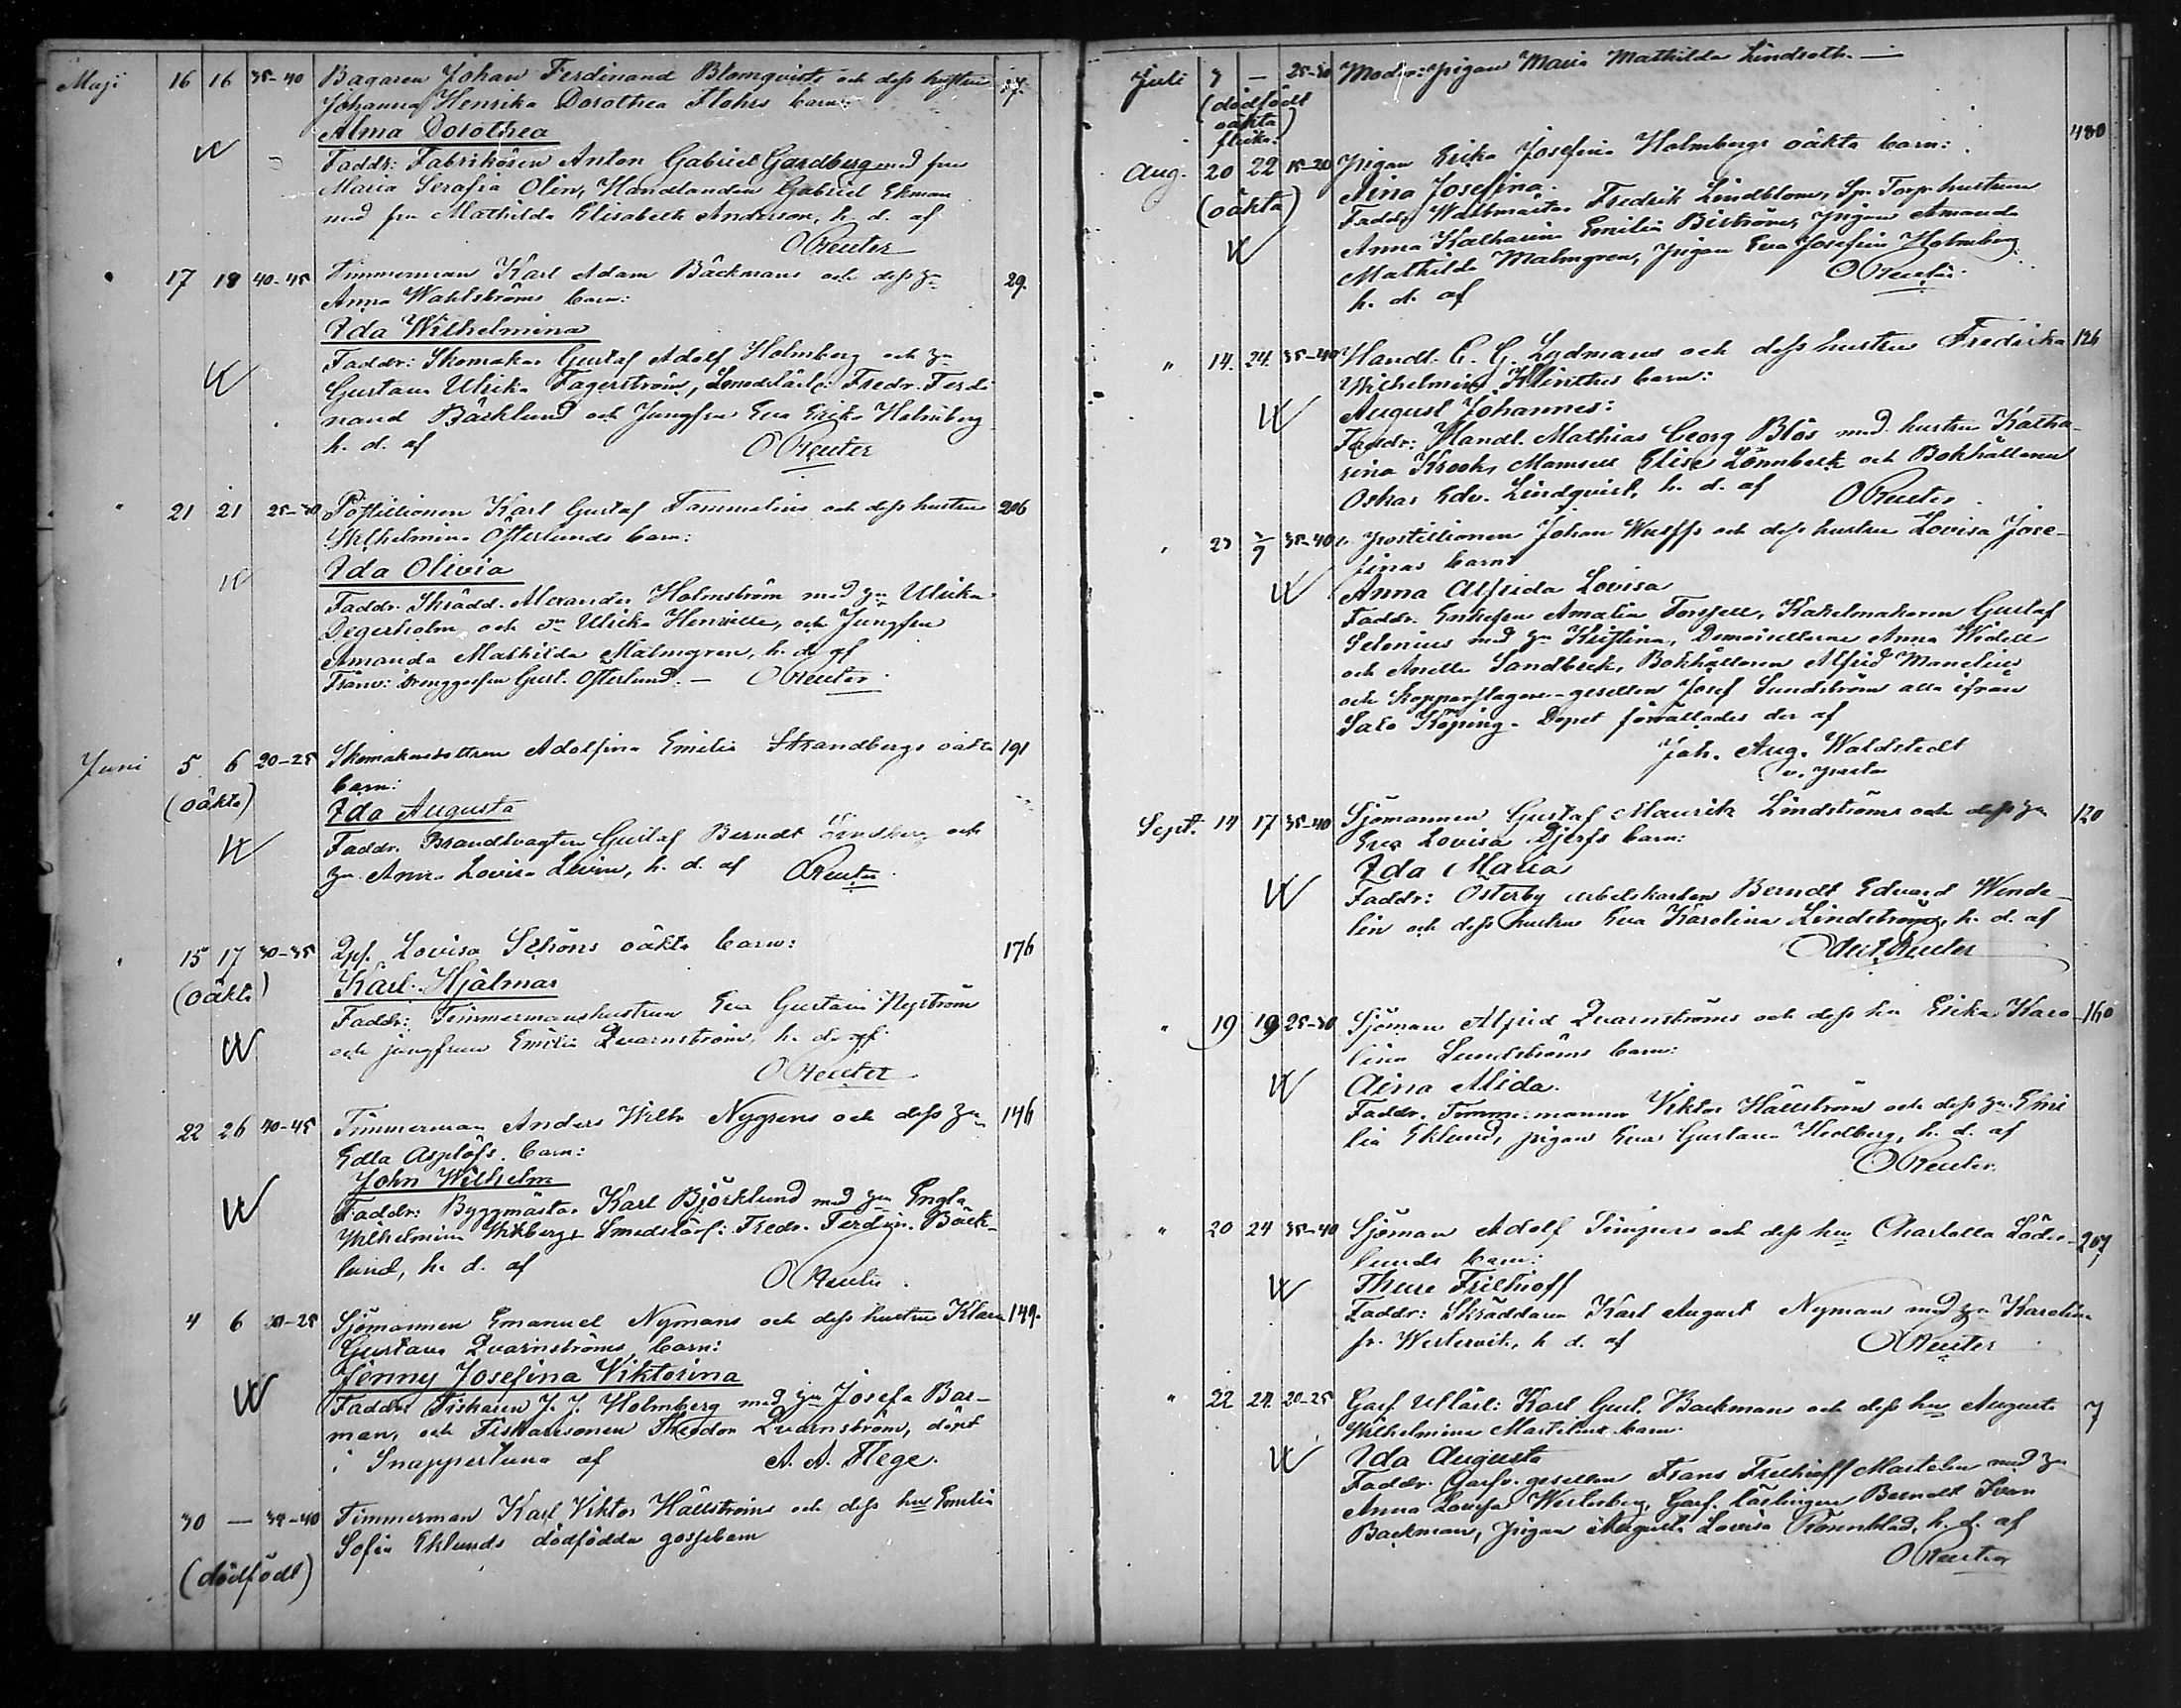 Maji 16 16 35-40 Bagaren Johan Ferdinand Blomqvists och dess hustru
Johanna Henrika Dorothea Flohrs barn:
Alma Dorothea
Faddr: Fabrikören Anton Gabriel Gardberg med fru
Maria Serafia Olin, Handlanden Gabriel Ekman
med fru Mathilda Elisabeth Anderson, h. d. af
OReuter
17 18 40-45 Timmerman Karl Adam Bäckmans och dess 29.
Anna Wahlströms barn:
Ida Wilhelmina
Faddr: Skomakar Gustaf Adolf Holmberg och
Gustava Ulrika Fagerström, Smedslärl: Fredr. Ferdi
nand Bäcklund och Jungfru Eva Erika Holmberg
h. d. af OReuter
" 21 21 25-30 Postillionen Karl Gustaf Tammelins och dess hustru 206
Wilhelmina Österlunds barn:
Ida Olivia
Faddr. Skrädd. Alexander Holmström med Ulrika
Degerholm och Ulrika Henriette, och Jungfru
Amanda Mathilda Malmgren, h. d. af
Gust. Österlund. — OReuter
Juni 5 6 20-25 Skomakaredottren Adolfina Emilia Strandbergs oäkta 191
(oäkta) barn:
Ida Augusta
Faddr. Brandvagten Gustaf Berndt och
Anna Lovisa Levin, h. d. af OReuter
15 17 30-35 Lovisa Schöns oäkta barn: 176
(oäkta) Karl Hjalmar
Faddr: Timmermanshustrun Eva Gustava Nyström
och jungfrun Emilia Qvarnström, h. d. af
OReuter
22 26 40-45 Timmerman Anders Wilh. Nygrens och dess 146
Edla Asplöfs barn:
John Wilhelm
Faddr: Byggmästar Karl Björklund med Engla
Wilhelmina Wikberg, Smedslärl: Fredr. Ferdin. Bäck-
lund, h. d. af OReuter
4 6 20-25 Sjömannen Emanuel Nymans och dess hustru Klara 149.
Gustava Qvarnströms barn:
Jenny Josefina Viktorina
Faddr Fiskaren J. J. Holmberg med Josefa Bar-
man, och Fiskaresonen Theodor Qvarnström, döpt
i Snappertuna af A. A. Flege.
30 — 35-40 Timmerman Karl Viktor Hällströms och dess Emilia
Sofia Eklunds dödfödda gossebarn
(dödfödt)
Juli 7 — 25-30 Moder: pigan Maria Mathilda Lindroth. —
(dödfödt
oäkta
flicka)
480
Aug. 20 22 15-20 pigan Erika Josefina Holmbergs oäkta barn:
(oäkta) Aina Josefina.
Faddr Fredrik Lindblom, Sp. Torp. hustrun
Anna Katharina Emilia Biström, pigan Amanda
Mathilda Malmgren, pigan Eva Josefina Holmberg
h. d. af OReuter
" 14. 24. 35-40 Handl. C. G. Lydmans och dess hustru Fredrika 126
Wilhelmina Klinthes barn:
August Johannes:
Faddr: Handl. Mathias Georg Blös med hustru Katha-
rina Krook, Mamsell Elise Lönnbeck och Bokhållaren
Oskar Edv. Lindqvist, h. d. af OReuter
35-40 postillionen Johan Wulffs och dess hustru Lovisa Jose-
finas barn
Anna Alfrida Lovisa
Faddr. Enkefru Amalia Forssell, Kakelmakaren Gustaf
Selenius med Kristina, Demoisellerne Anna Widell
och Sandbeck, Bokhållaren Alfrid Manelius
och Kopparslagare-gesellen Josef Sundström alla ifrån
Salo Köping. Dopet förrättades der af
Joh. Aug. Waldstedt
Sept. 14 17 35-40 Sjömannen Gustaf Maurits Lindströms och dess 120
Eva Lovisa Djerfs barn:
Ida Maria
Faddr: Österby arbetskarlen Berndt Edvard Wende-
lin och dess hustru Eva Karolina Lindström, h. d. af
OReuter
" 19 19 25-30 Sjöman Alfrid Qvarnströms och dess Erika Karo- 160
lina Lundströms barn:
Aina Alida.
Faddr. Timmermannen Viktor Hällström och dess Emi
lia Eklund, pigan Eva Gustava Hedberg, h. d. af
OReuter.
" 20 24 35-40 Sjöman Adolf och dess Charlotta Söder- 207
lunds barn:
Thure Frithioff
Faddr: Skräddaren Karl August Nyman med Karolina
Westervik, h d. af OReuter
" 22 24. 20-25 Garf. Karl Gust. Backmans och dess Augusta 7
Wilhelmina Martelins barn
Ida Augusta
Faddr. Garfv. gesellen Frans Frithioff Martelin med
Anna Lovisa Westerberg, Garf. lärlingen Berndt Ivan
Backman, pigan Augusta Lovisa Rosenblad, h. d. af
OReuter